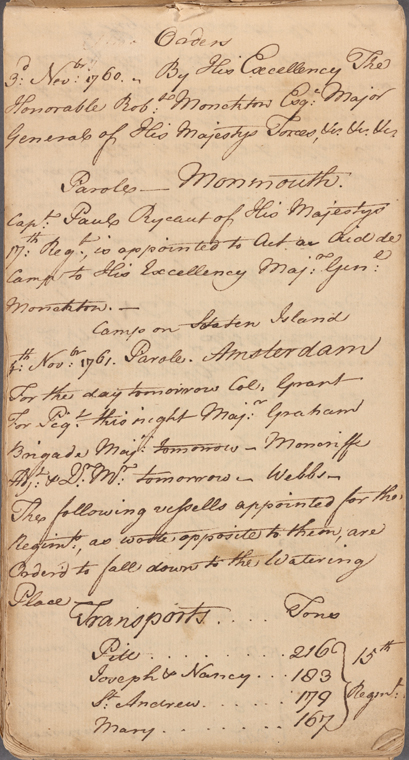 Orders
3d. Novbr: 1760. - By His Excellency The
Honorable Robt. Monckton Esqr. Major
General of His Majestys Forces, &c. &c. &c
Parole - Monmouth.
Capt. Paul Rycaut of His Majestys
17th Regt. is appointed to Act as Aid de
Camp to His Excellency Majr. Genl.
Monckton. -
Camp on Staten Island
Novbr: 1761. Parole. Amsterdam
For the day tomorrow Col. Grant
For Piqt. this night Majr. Graham
Brigade Majr. tomorrow - Moncriffe
Adjt. & Qr. Mr. tomorrow - Webbs -
The following vessells appointed for the
Regimts. as wrote opposite to them, are
Order'd to fall down to the Watering
Place -
Transports .... Tons
Pitt ........ 216 } 15th
Joseph & Nancy ... 183
St. Andrew ...... 179 Regmt.
Mary ....... 167